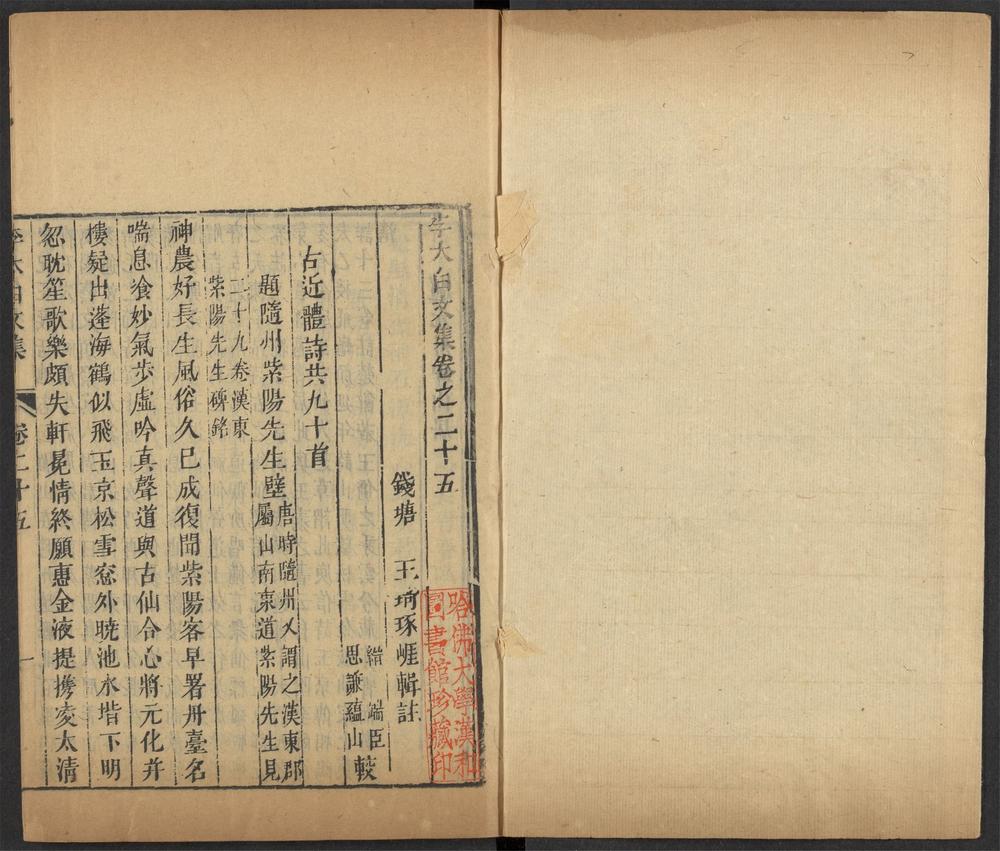 李太白文集卷之二十五
錢塘 王琦琢崖輯註
縉端臣
思謙蘊山較
古近體詩共九十首
題隨州紫陽先生壁唐時隨州又謂之漢東郡
屬山南東道紫陽先生見
二十九卷漢東
紫陽先生碑銘
神農好長生風俗久已成復聞紫陽客早署丹臺名
喘息飡妙氣步虛吟真聲道與古仙合心將元化并
樓疑出蓬海鶴似飛玉京松雪窓外曉池水堦下明
忽耽笙歌樂頗失軒冕情終願惠金液提攜凌太清
李太白文集 卷二十五 一
哈佛大學漢和
圖書館珍藏印